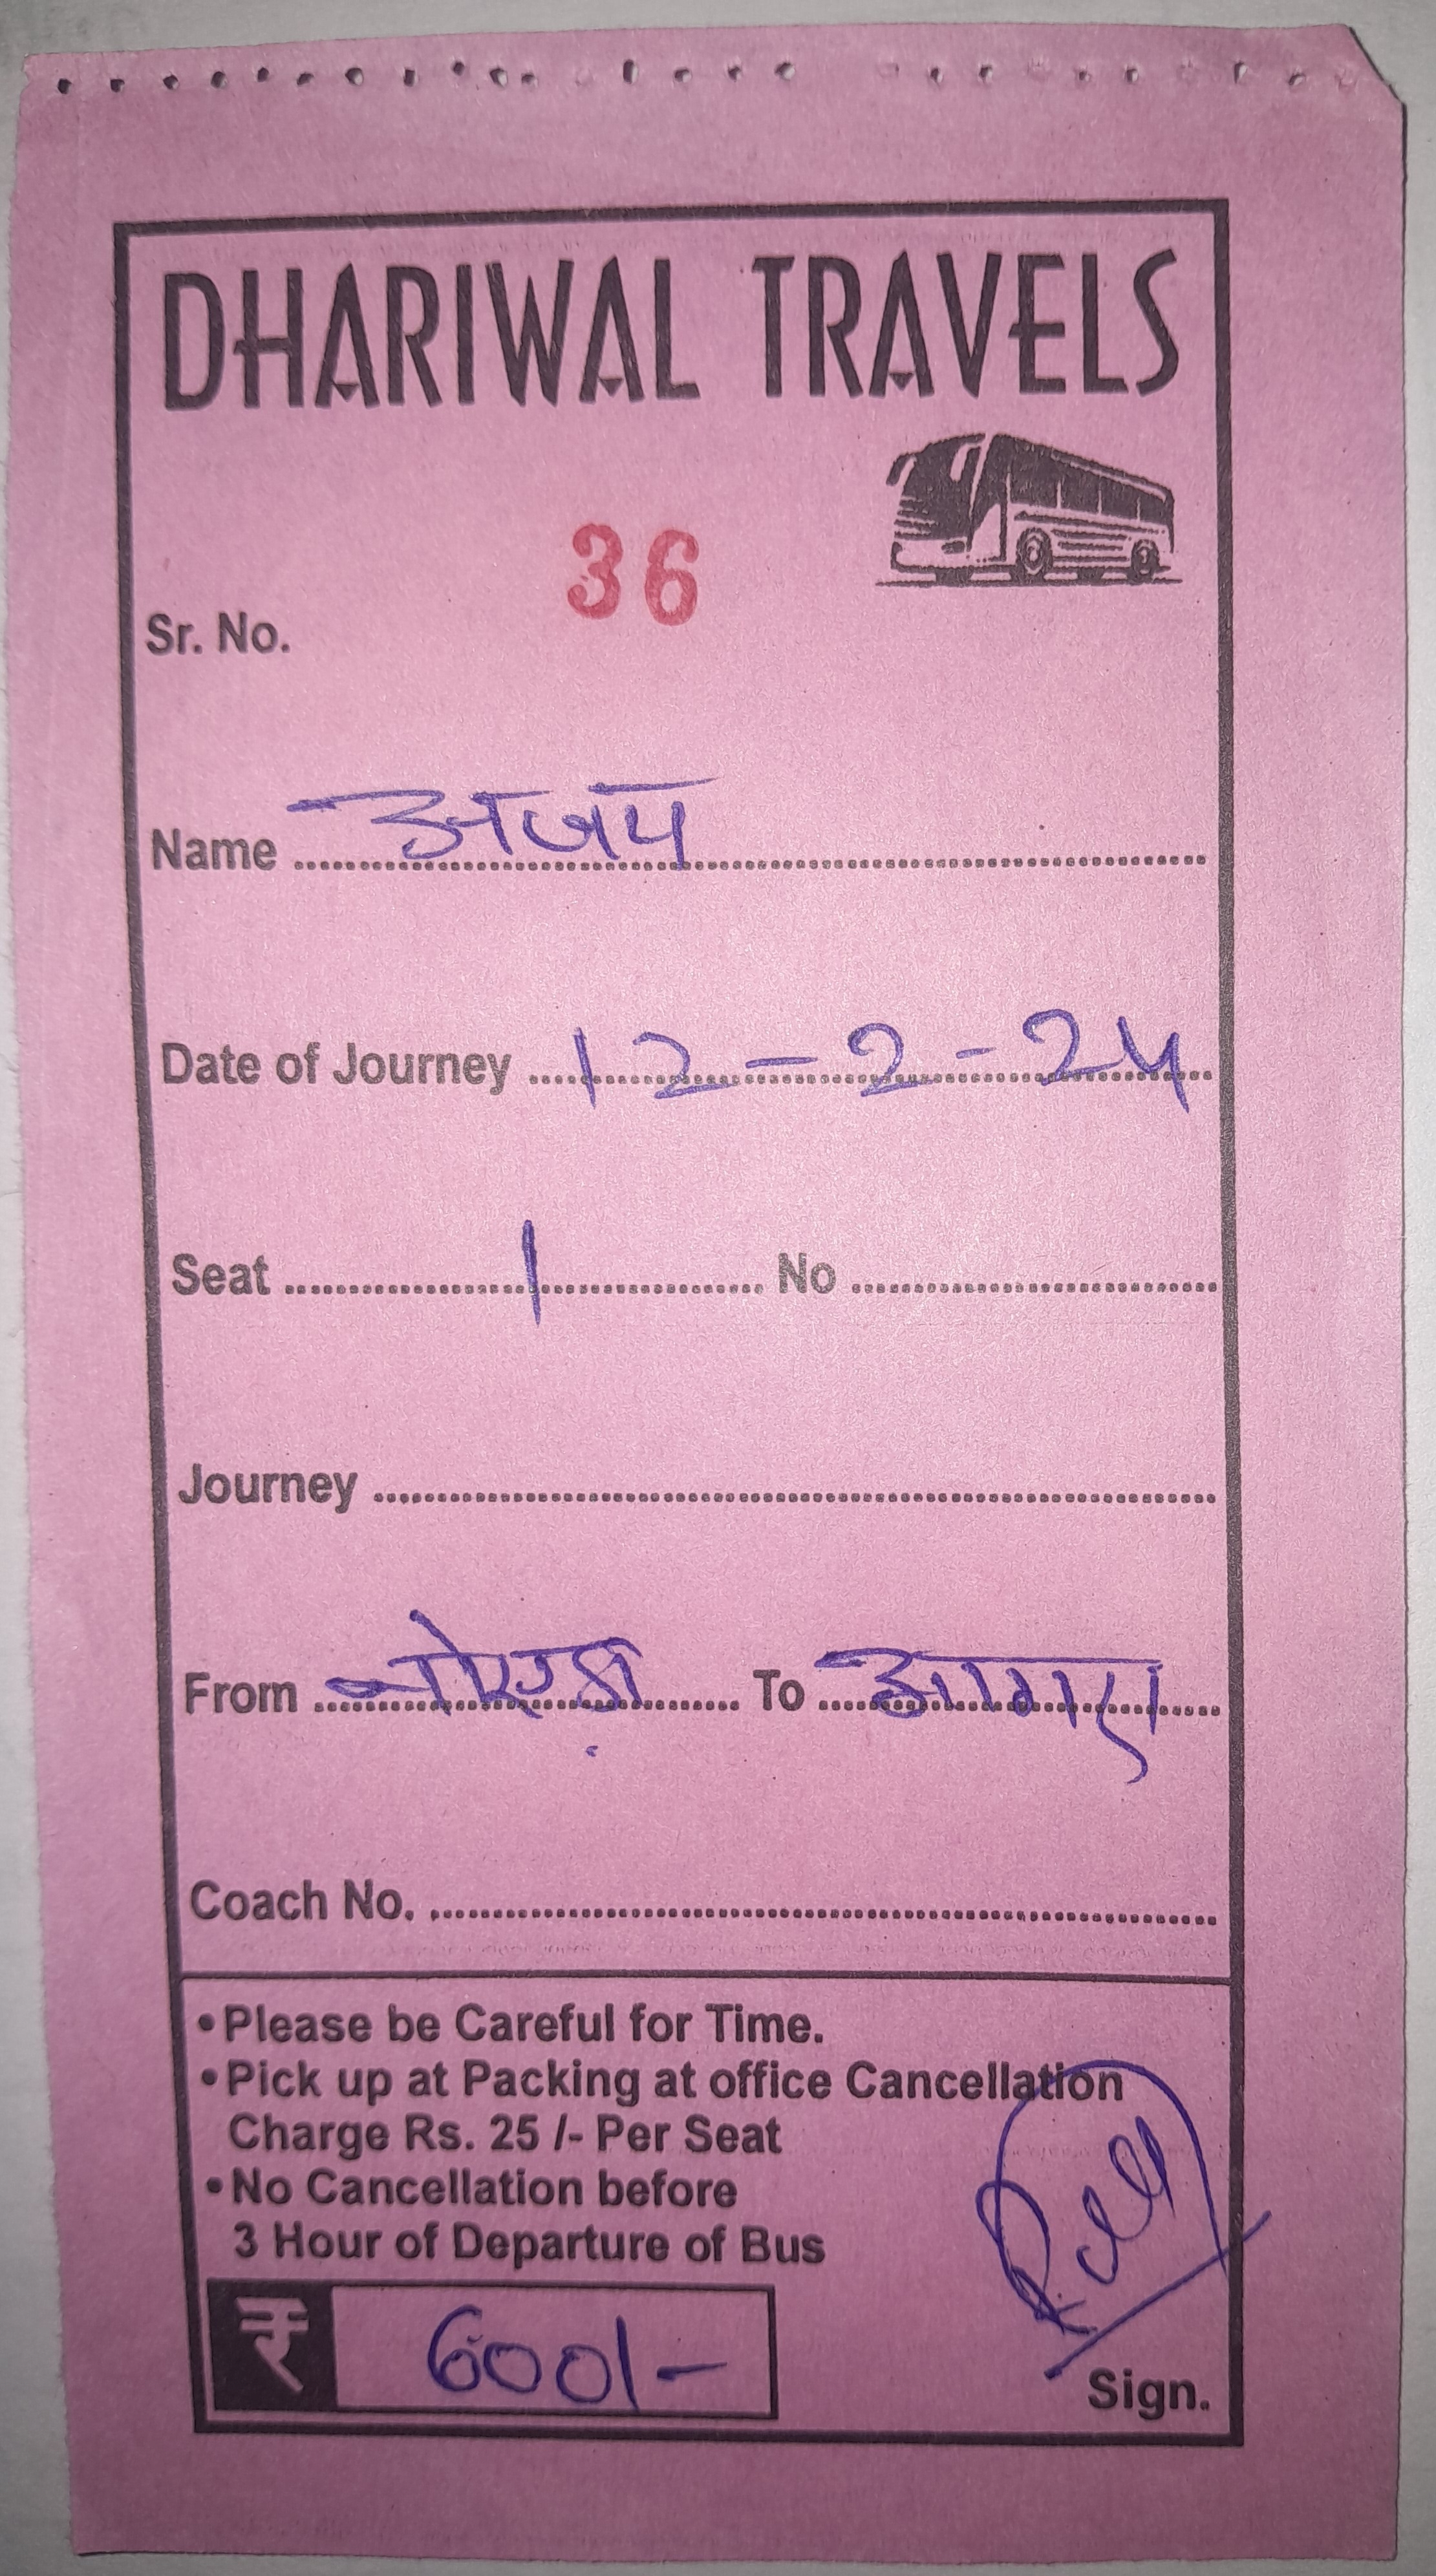 DHARIWAL TRAVELS
36
Sr. No.
Name अजय
Date of Journey 12-2-24
Seat 1 No
Journey
From नोएडा To आगरा
Coach No.
• Please be Careful for Time.
• Pick up at Packing at office Cancellation
Charge Rs. 25 /- Per Seat
• No Cancellation before
3 Hour of Departure of Bus
₹ 600/-
Sign.